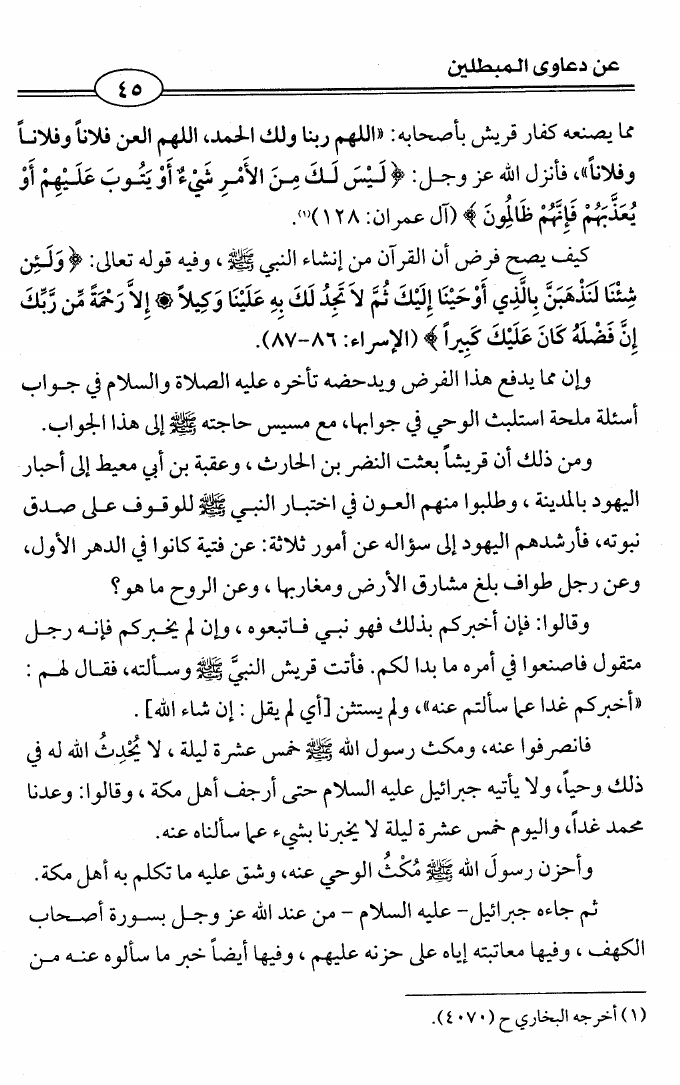 عن دعاوى المبطلين
٤٥
مما يصنعه كفار قريش بأصحابه: «اللهم ربنا ولك الحمد، اللهم العن فلاناً وفلاناً
وفلاناً»، فأنزل الله عز وجل: ﴿ لَيْسَ لَكَ مِنَ الأَمْرِ شَيْءٌ أَوْ يَتُوبَ عَلَيْهِمْ أَوْ
يُعَذِّبَهُمْ فَإِنَّهُمْ ظَالِمُونَ ﴾ (آل عمران: ١٢٨)(١).
كيف يصح فرض أن القرآن من إنشاء النبي ﷺ ، وفيه قوله تعالى: ﴿ وَلَئِن
شِئْنَا لَنَذْهَبَنَّ بِالَّذِي أَوْحَيْنَا إِلَيْكَ ثُمَّ لاَ تَجِدُ لَكَ بِهِ عَلَيْنَا وَكِيلاً ۞ إِلاَّ رَحْمَةً مِّن رَّبِّكَ
إِنَّ فَضْلَهُ كَانَ عَلَيْكَ كَبِيراً ﴾ (الإسراء: ٨٦-٨٧).
وإن مما يدفع هذا الفرض ويدحضه تأخره عليه الصلاة والسلام في جواب
أسئلة ملحة استلبث الوحي في جوابها، مع مسيس حاجته ﷺ إلى هذا الجواب.
ومن ذلك أن قريشاً بعثت النضر بن الحارث ، وعقبة بن أبي معيط إلى أحبار
اليهود بالمدينة ، وطلبوا منهم العون في اختبار النبي ﷺ للوقوف على صدق
نبوته، فأرشدهم اليهود إلى سؤاله عن أمور ثلاثة: عن فتية كانوا في الدهر الأول،
وعن رجل طواف بلغ مشارق الأرض ومغاربها ، وعن الروح ما هو؟
وقالوا: فإن أخبركم بذلك فهو نبي فاتبعوه ، وإن لم يخبركم فإنه رجل
متقول فاصنعوا في أمره ما بدا لكم. فأتت قريش النبيَّ ﷺ وسألته، فقال لهم :
«أخبركم غدا عما سألتم عنه»، ولم يستثن [أي لم يقل : إن شاء الله] .
فانصرفوا عنه، ومكث رسول الله ﷺ خمس عشرة ليلة ، لا يُحْدِثُ الله له في
ذلك وحياً، ولا يأتيه جبرائيل عليه السلام حتى أرجف أهل مكة ، وقالوا: وعدنا
محمد غداً، واليوم خمس عشرة ليلة لا يخبرنا بشيء عما سألناه عنه.
وأحزن رسولَ الله ﷺ مُكْثُ الوحي عنه، وشق عليه ما تكلم به أهل مكة.
ثم جاءه جبرائيل- عليه السلام - من عند الله عز وجل بسورة أصحاب
الكهف ، وفيها معاتبته إياه على حزنه عليهم ، وفيها أيضاً خبر ما سألوه عنه من
(١) أخرجه البخاري ح (٤٠٧٠).